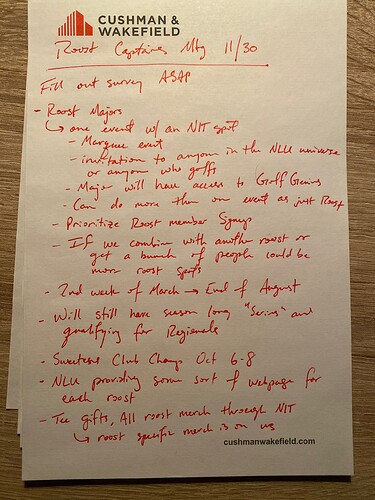 CUSHMAN &
WAKEFIELD
Roost Captains Mtg 11/30
Fill out survey ASAP
- Roost Majors
↳ one event w/ an NIT spot
- Marquee event
- invitation to anyone in the NLU universe
or anyone who golfs
- Major will have access to Golf Genius
- Can do more than one event as just Roost
- Prioritize Roost member signups
- If we combine with another roost or
get a bunch of people could be
more roost spots
- 2nd week of March → End of August
- Will still have season long "Series" and
qualifying for Regionals
- Sweetens Club Champ Oct 6-8
- NLU providing some sort of webpage for
each roost
- Tee gifts, All roost merch through NIT
↳ roost specific merch is on us
cushmanwakefield.com